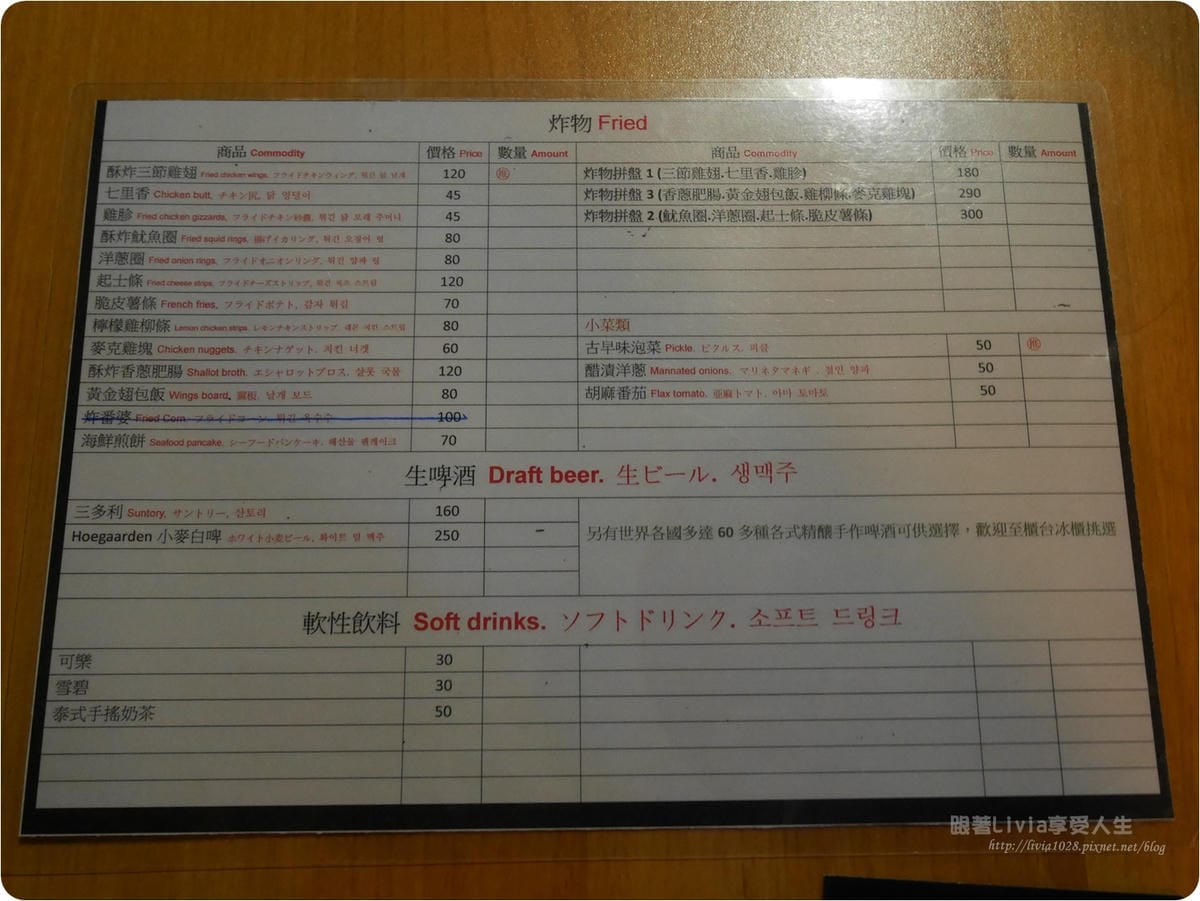 炸物 Fried
商品 Commodity 價格 Price 數量 Amount 商品 Commodity 價格 Price 數量 Amount
酥炸三節雞翅 Fried chicken wings, フライドチキンウィング, 튀긴 닭 날개 120 推 炸物拼盤 1 (三節雞翅.七里香.雞胗) 180
七里香 Chicken butt, チキン尻, 닭 엉덩이 45 炸物拼盤 3 (香蔥肥腸.黃金翅包飯.雞柳條.麥克雞塊) 290
雞胗 Fried chicken gizzards, フライドチキン砂嚢, 튀긴 닭 모래 주머니 45 炸物拼盤 2 (魷魚圈.洋蔥圈.起士條.脆皮薯條) 300
酥炸魷魚圈 Fried squid rings, 揚げイカリング, 튀긴 오징어 링 80
洋蔥圈 Fried onion rings, フライドオニオンリング, 튀긴 양파 링 80
起士條 Fried cheese strips, フライドチーズストリップ, 튀긴 치즈 스트립 120
脆皮薯條 French fries, フライドポテト, 감자 튀김 70
檸檬雞柳條 Lemon chicken strips. レモンチキンストリップ. 레몬 치킨 스트립 80 小菜類
麥克雞塊 Chicken nuggets. チキンナゲット. 치킨 너겟 60 古早味泡菜 Pickle. ピクルス. 피클 50 推
酥炸香蔥肥腸 Shallot broth. エシャロットブロス. 샬롯 국물 120 醋漬洋蔥 Marinated onions. マリネタマネギ. 절인 양파 50
黃金翅包飯 Wings board. 翼板. 날개 보드 80 胡麻番茄 Flax tomato. 亜麻トマト. 아마 토마토 50
炸番婆 Fried Corn フライドコーン. 튀긴 옥수수 100
海鮮煎餅 Seafood pancake. シーフードパンケーキ. 해산물 팬케이크 70
生啤酒 Draft beer. 生ビール. 생맥주
三多利 Suntory, サントリー, 산토리 160
Hoegaarden 小麥白啤 ホワイト小麦ビール, 화이트 밀 맥주 250 另有世界各國多達 60 多種各式精釀手作啤酒可供選擇，歡迎至櫃台冰櫃挑選
軟性飲料 Soft drinks. ソフトドリンク. 소프트 드링크
可樂 30
雪碧 30
泰式手搖奶茶 50
跟著Livia享受人生
http://livia1028.pixnet.net/blog